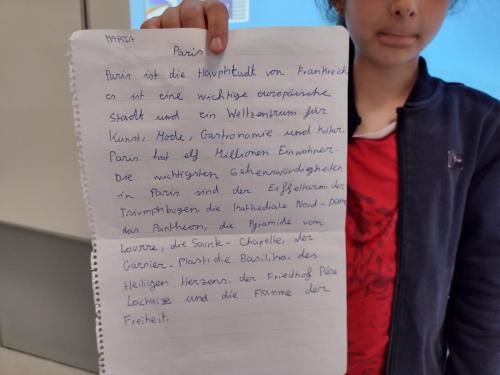 MARIA
Paris
Paris ist die Hauptstadt von Frankreich
es ist eine wichtige europäische
Stadt und ein Weltzentrum für
Kunst, Mode, Gastronomie und Kultur.
Paris hat elf Millionen Einwohner.
Die wichtigsten Sehenswürdigkeiten
in Paris sind der Eiffelturm, der
Triumphbogen, die Kathedrale Nord-Dame
das Pantheon, die Pyramide vom
Louvre, die Sainte-Chapelle, der
Garnier-Plast, die Basilika des
Heiligen Herzens, der Friedhof Père
Lachaize und die Flamme der
Freiheit.